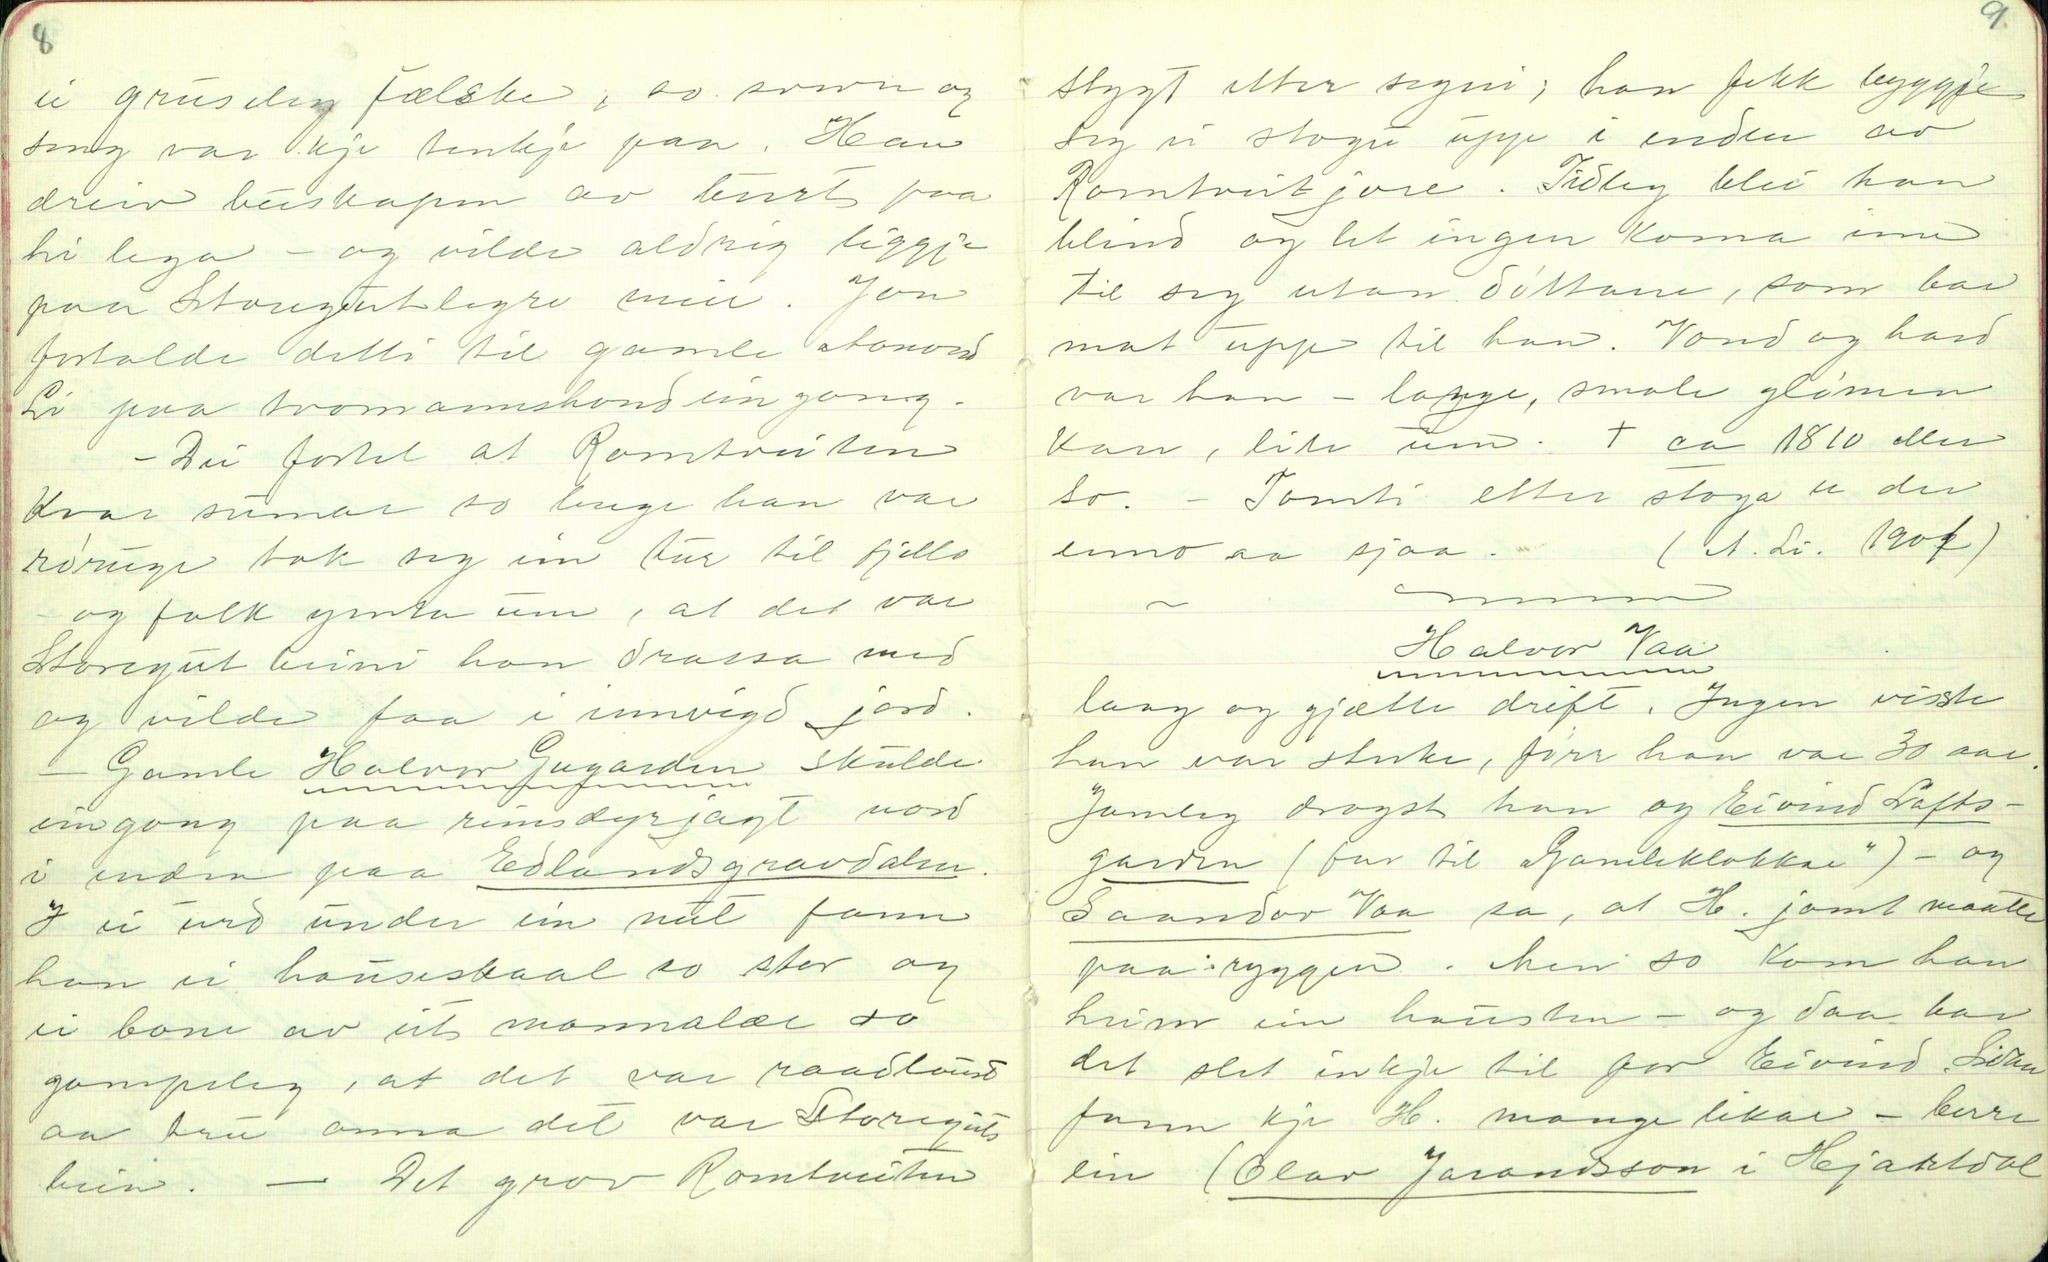 8
ei gruseleg fælske, so sovn og
song var kje tenkje paa. Han
dreiv buskapen av burt paa
hi lega – og vilde aldrig liggje
paa Storegutlegre meir. Jon
fortalde detti til gamle Aanond
Li paa tvomannshond ein gong.
– Dei fortel at Romtveiten
kvar sumar so lenge han var
røruge tok seg ein tur til fjells
– og folk ymta um, at det var
Storegut beini han drassa med
og vilde faa i innvigd jord.
– Gamle Halvor Gugarden skulde
eingong paa reinsdyrjagt nord
i enden paa Edlandsgravdalen.
I ei urd under ein nut fann
han ei hauseskaal so stor og
ei bone av eit mannalær so
gompeleg, at det var raadlaust
aa tru anna det var Storeguts
bein. — Det grov Romtveiten
9
stygt etter segni; han fekk byggje
seg ei stogu uppe i enden av
Romtveitjore. Tidleg blei han
blind og let ingen koma inn
til seg utan dóttare, som bar
mat uppe til han. Vond og hard
var han – lange, smale glómen
kar, lite um. † ca 1810 eller
so. – Tomti etter stoga er der
enno aa sjaa. (A. Li. 1907)
~
Halvor Vaa
laag og gjætte drift. Ingen visste
han var sterke, fórr han var 30 aar.
Jamleg drogst han og Eivind Lofts-
garden (far til "Gamleklokkar") – og
Saandor Vaa sa, at H. jamt maatte
paa ryggen. Men so kom han
heim ein hausten – og daa bar
det slet inkje til for Eivind. Sidan
fann kje H. mange likar – berre
ein (Olav Jarandsson i Hjartdal